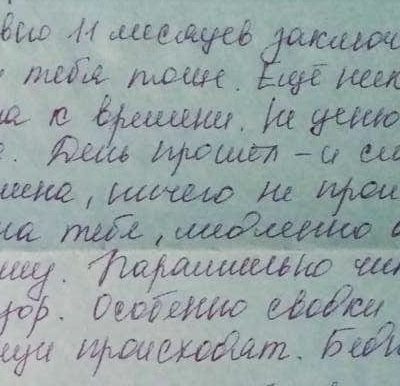 вью 11 месяцев заключ
тебя тоще. Ещё ник
на к времени. Не ценю
. День прошёл – и сл
мена, ничего не прои
на тебе, медленно
шу. Параллельно чит
зор. Особенно сводки
ици происходят. Беды